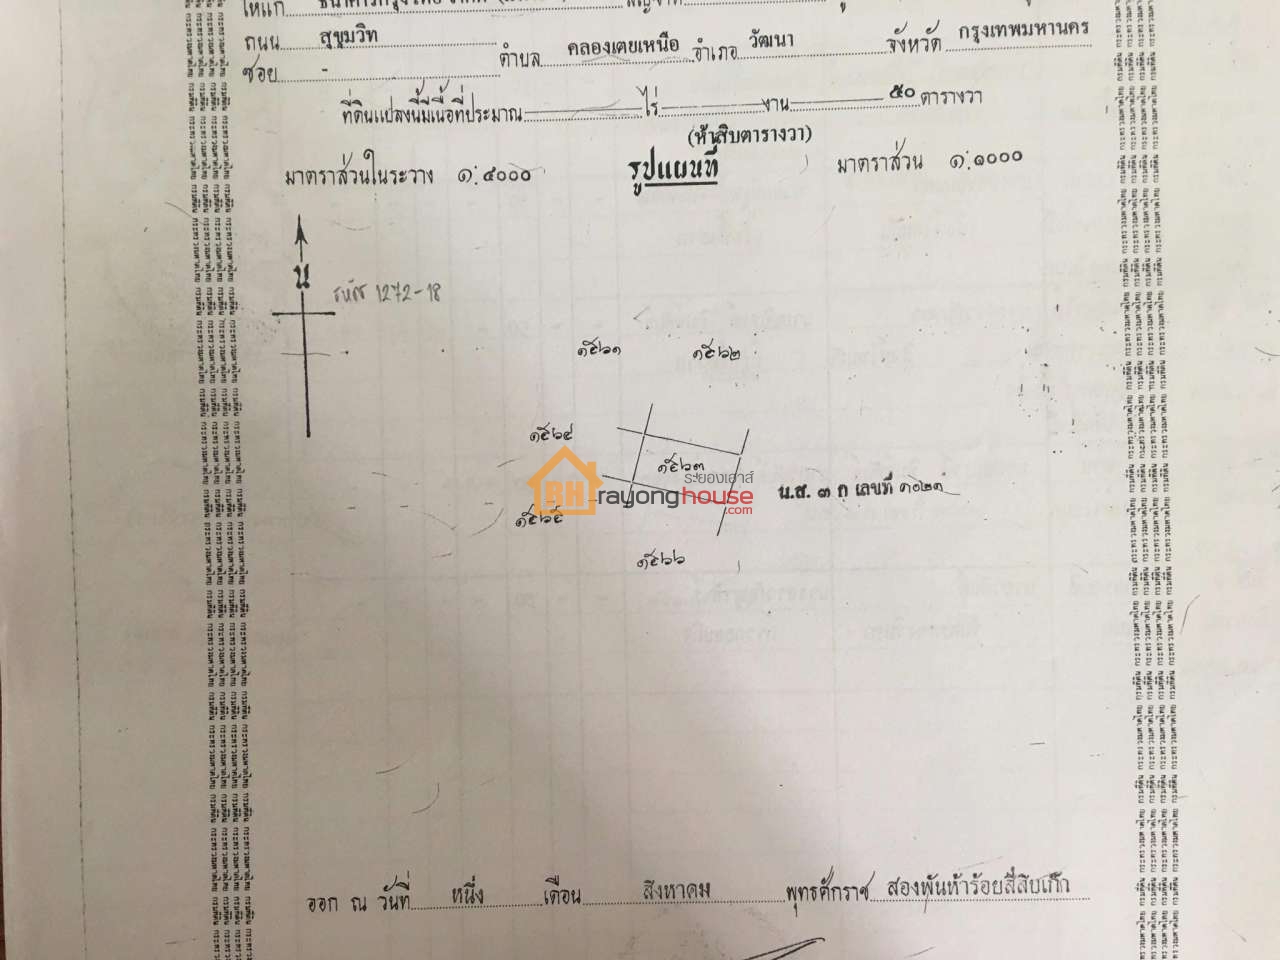 ให้แก่ ธนาคารกรุงไทย จำกัด
ถนน สุขุมวิท
ซอย - ตำบล คลองเตยเหนือ อำเภอ วัฒนา จังหวัด กรุงเทพมหานคร
ที่ดินแปลงนี้มีเนื้อที่ประมาณ ไร่ งาน ๕๐ ตารางวา
(ห้าสิบตารางวา)
มาตราส่วนในระวาง ๑:๔๐๐๐ รูปแผนที่ มาตราส่วน ๑:๑๐๐๐
น
รหัส 1272-18
๑๕๖๑ ๑๕๖๒
๑๕๖๔
๑๕๖๓
ระยองเฮาส์
RH rayonghouse.com
น.ส. ๓ ก เลขที่ ๑๐๒๑
๑๕๖๕
๑๕๖๖
ออก ณ วันที่ หนึ่ง เดือน สิงหาคม พุทธศักราช สองพันห้าร้อยสี่สิบเก้า
กรมที่ดิน กระทรวงมหาดไทย